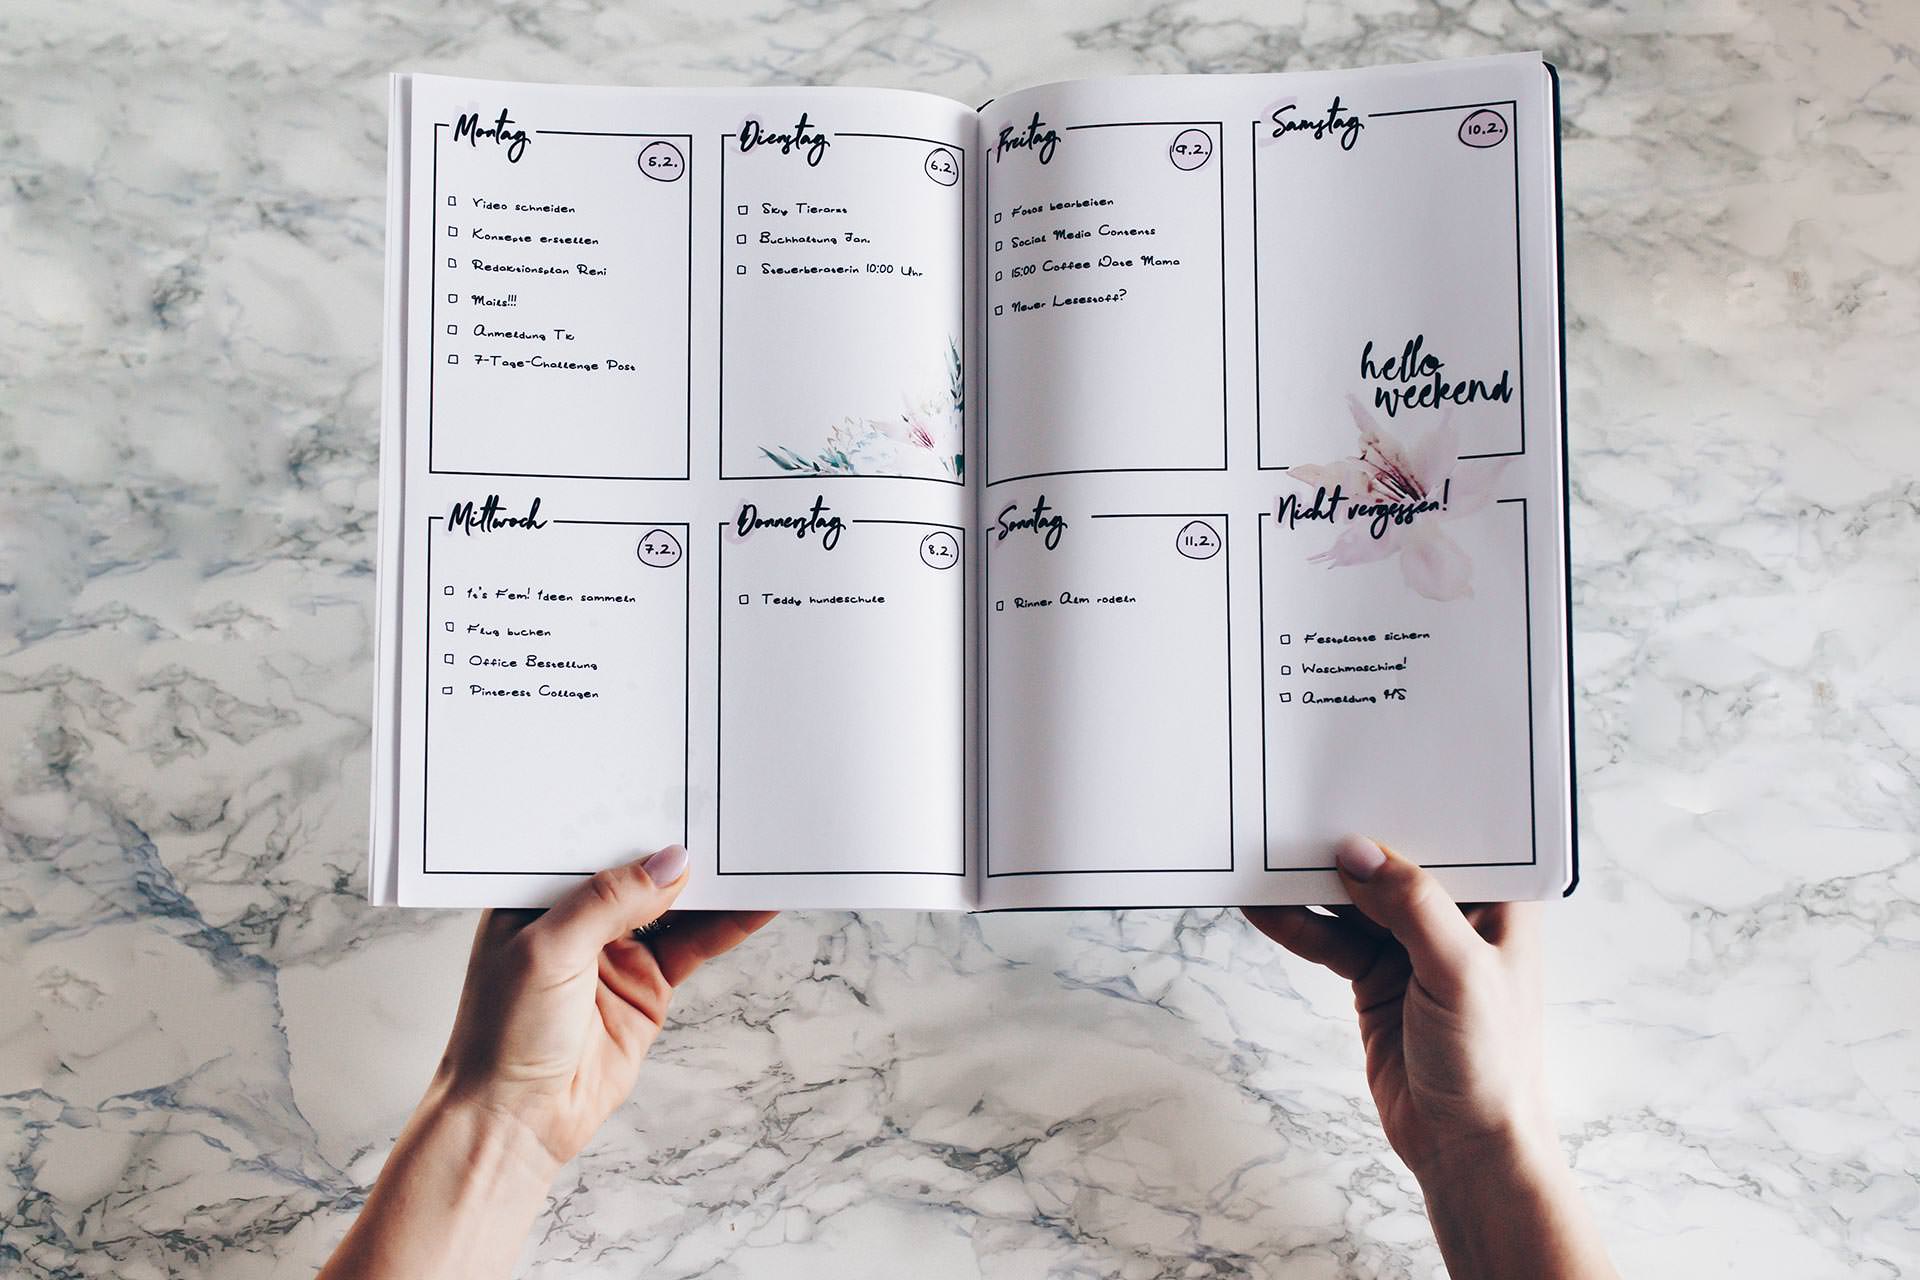 Montag
5.2.
Video schneiden
Konzepte erstellen
Redaktionsplan Reni
Mails!!!
Anmeldung TK
7-Tage-Challenge Post
Dienstag
6.2.
Sky Tierarzt
Buchhaltung Jan.
Steuerberaterin 10:00 Uhr
Mittwoch
7.2.
It's Fem! Ideen sammeln
Flug buchen
Office Bestellung
Pinterest Collagen
Donnerstag
8.2.
Teddy hundeschule
Freitag
9.2.
Fotos bearbeiten
Social Media Contents
15:00 Coffee Date Mama
Neuer Lesestoff?
Samstag
10.2.
hello
weekend
Sonntag
11.2.
Rinner Alm rodeln
Nicht vergessen!
Festplatte sichern
Waschmaschine!
Anmeldung MS